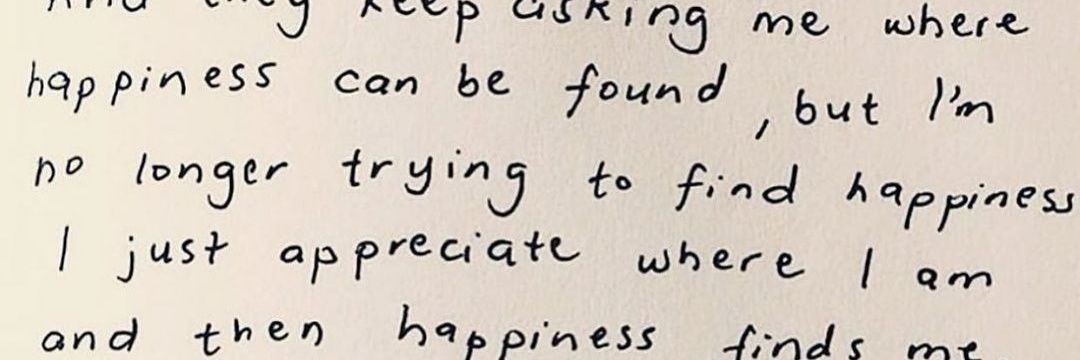 And they keep asking me where
happiness can be found, but I'm
no longer trying to find happiness
I just appreciate where I am
and then happiness finds me